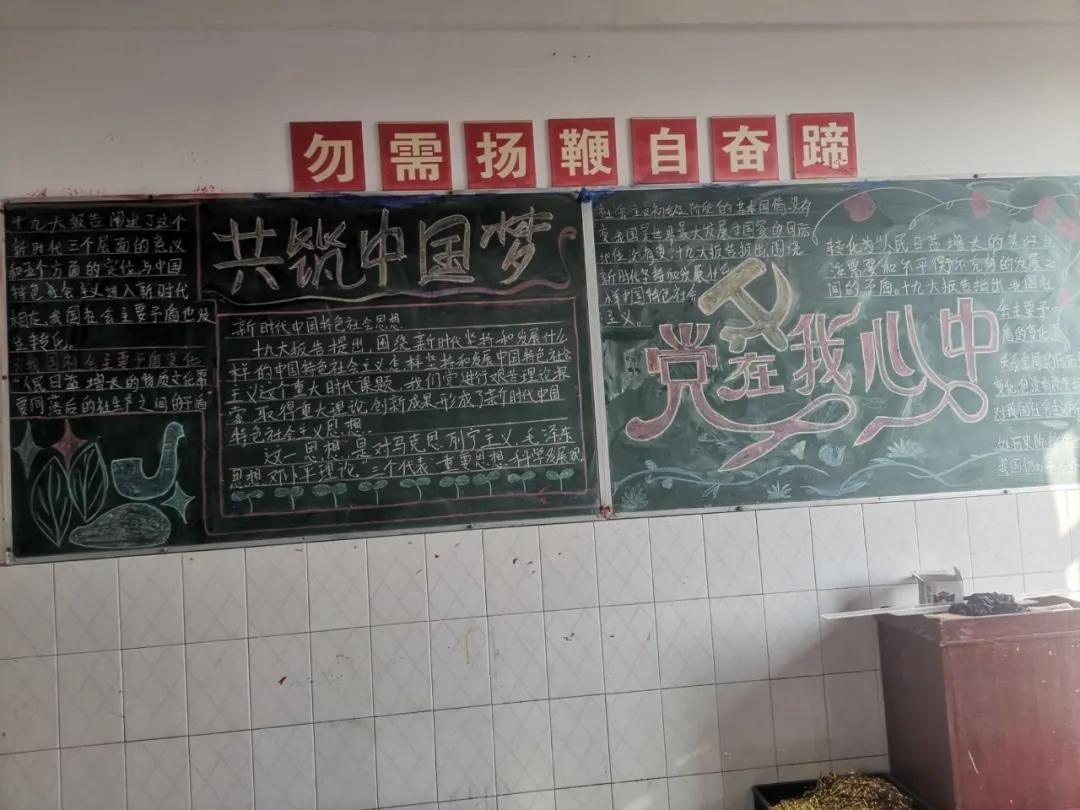 勿需扬鞭自奋蹄
十九大报告阐述了这个
新时代三个层面的意义
和五个方面的定位,与中国
特色社会主义进入新时代
相应,我国社会主要矛盾也发
生转化。
我国社会主要矛盾变化
"人民日益增长的物质文化需
要同落后的社生产之间的矛盾
共筑中国梦
新时代中国特色社会思想
十九大报告提出,围绕新时代坚持和发展什么
样的中国特色社会主义,怎样坚持和发展中国特色社会
主义这个重大时代课题,我们党进行艰苦理论探
索,取得重大理论创新成果,形成了新时代中国
特色社会主义思想
这一思想,是对马克思列宁主义、毛泽东
思想、邓小平理论、三个代表重要思想、科学发展观
社会主义初级阶段的基本国情没有
变,我国是世界最大发展中国家的国际
地位没有变,十九大报告指出,围绕
新时代坚持和发展什么
样中国特色社会
主义。
党在我心中
转化为"人民日益增长的美好生
活需要和不平衡不充分的发展之
间的矛盾,十九大报告指出,我国社
会主要矛
盾的变化
关系全局的历史
变化,但没有改变
对我国社会主义
处历史阶
我国仍